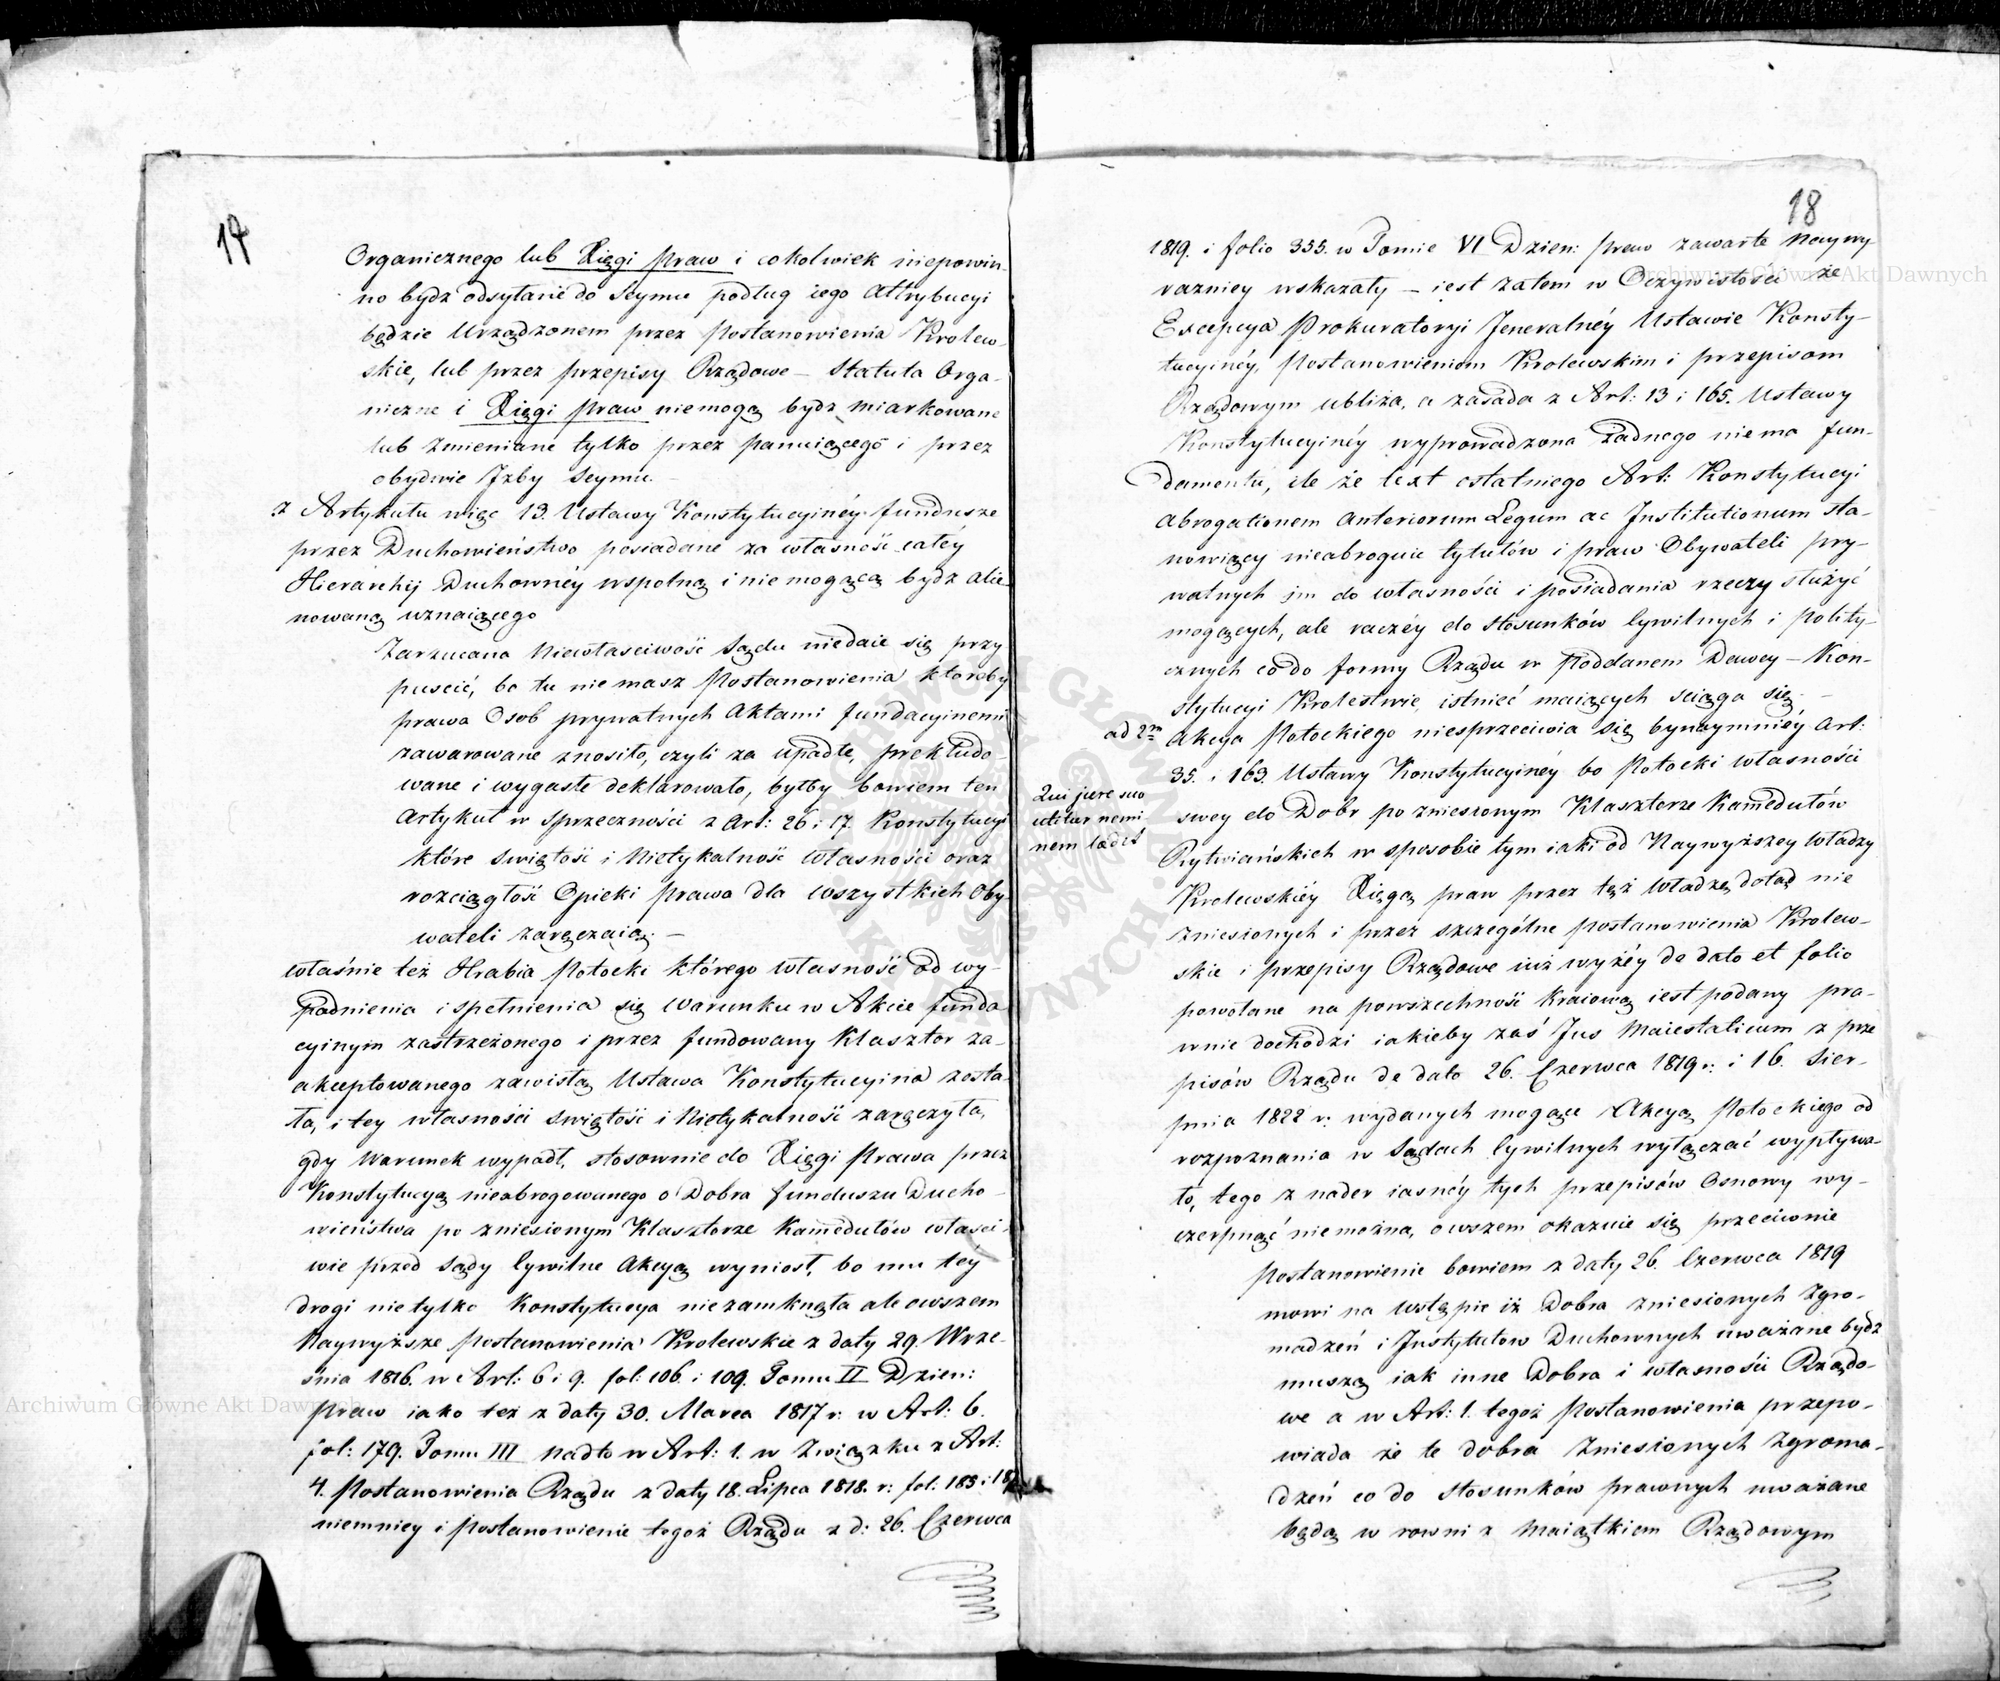 17
Organicznego lub Xięgi praw i cokolwiek niepowin-
no bydz odsyłane do Seymu podług iego Attrybucyi
będzie Urządzonem przez Postanowienia Królew-
skie, lub przez przepisy Rządowe – Statuta Orga-
niczne i Xięgi praw niemogą bydz miarkowane
lub zmieniane tylko przez panuiącego i przez
obydwie Izby Seymu. –
z Artykułu więc 13. Ustawy Konstytucyinéy fundusze
przez Duchowieństwo posiadane za własność całéy
Hierarchij Duchownéy wspolną i nie mogącą bydz alie-
nowaną uznaiącego
Zarzucana Niewłasciwość Sądu niedaie się przy
puscić, bo tu nie masz Postanowienia któreby
prawa Osob prywatnych Aktami fundacyinemi
zawarowane znosiło, czyli za upadłe, prekludo-
wane i wygasłe deklarowało, byłby bowiem ten
Artykuł w sprzeczności z Art: 26 i 17. Konstytucyi
które swiętość i Nietykalność własności oraz
rozciągłość Opieki prawa dla wszystkich Oby-
wateli zaręczaią. –
właśnie też Hrabia Potocki którego własność od wy-
padnienia i spełnienia się Warunku w Akcie funda-
cyinym zastrzeżonego i przez fundowany Klasztor za-
akceptowanego zawisłą Ustawa Konstytucyina zosta-
ła, i tey własności swiętość i Nietykalność zaręczyła,
gdy Warunek wypadł, stosownie do Xięgi Prawa przez
Konstytucyą nieabrogowanego o Dobra funduszu Ducho-
wieństwa po zniesionym Klasztorze Kamedułów własci-
wie przed Sądy Cywilne Akcyą wyniosł, bo mu tey
drogi nie tylko Konstytucya niezamknęła ale owszem
Naywyższe postanowienia Królewskie z daty 29. Wrze-
śnia 1816. w Art: 6 i 9. fol: 106. i 109. Tomu II Dzien:
praw iako też z daty 30. Marca 1817 r: w Art: 6.
fol: 179. Tomu III nadto w Art: 1. w Związku z Art:
4. Postanowienia Rządu z daty 18. Lipca 1818. r: fol: 183 i
niemniey i postanowienie tegoż Rządu z d: 26. Czerwca
18
1819. i folio 355. w Tomie VI Dzien: praw zawarte Naywy-
razniey wskazały – iest zatem w Oczywistości że
Excepcya Prokuratoryi Jeneralnéy Ustawie Konsty-
tucyinéy, Postanowieniom Królewskim i przepisom
Rządowym ubliża, a zasada z Art: 13 i 165. Ustawy
Konstytucyinéy wyprowadzona żadnego niema fun-
damentu, ile że text ostatniego Art: Konstytucyi
abrogationem anteriorum Legum ac Institutionum sta-
nowiący nieabroguie tytułów i praw Obywateli pry-
watnych im do własności i posiadania rzeczy służyć
mogących, ale raczéy do stosunków Cywilnych i polity-
cznych co do formy Rządu w poddanem Dawey – Kon-
stytucyi Królestwie, istnieć maiących sciąga się. –
ad 2m Akcya Potockiego niesprzeciwia się bynaymniéy Art:
35. i 163. Ustawy Konstytucyinéy bo Potocki własności
Qui jure suo
utitur nemi-
nem lædit
swey do Dobr po zniesionym Klasztorze Kamedułów
Rytwiańskich w sposobie tym iaki od Naywyższey Władzy
Królewskiéy Xięgą praw przez tęż Władzę dotąd nie
zniesionych i przez szczególne postanowienia Królew-
skie i przepisy Rządowe iuż wyżéy de dato et folio
powołane na powszechność Kraiową iest podany pra-
wnie dochodzi iakieby zaś Jus Maiestaticum z prze
pisów Rządu de dato 26. Czerwca 1819 r: i 16. Sier-
pnia 1822 r: wydanych mogące Akcyą Potockiego od
rozpoznania w Sądach Cywilnych wyłączać wypływa-
ło, tego z nader iasnéy tych przepisów Osnowy wy-
czerpnąć niemożna, owszem okazuie się przeciwnie
Postanowienie bowiem z daty 26. Czerwca 1819
mowi na wstępie iż Dobra zniesionych Zgro-
madzeń i Instytutow Duchownych uważane bydz
muszą iak inne Dobra i własności Rządo-
we a w Art: 1. tegoż Postanowienia przepo-
wiada że te dobra zniesionych Zgroma-
dzeń co do stosunków prawnych uważane
będą w rowni z Maiątkiem Rządowym
Archiwum Główne Akt Dawnych
Archiwum Główne Akt Dawnych